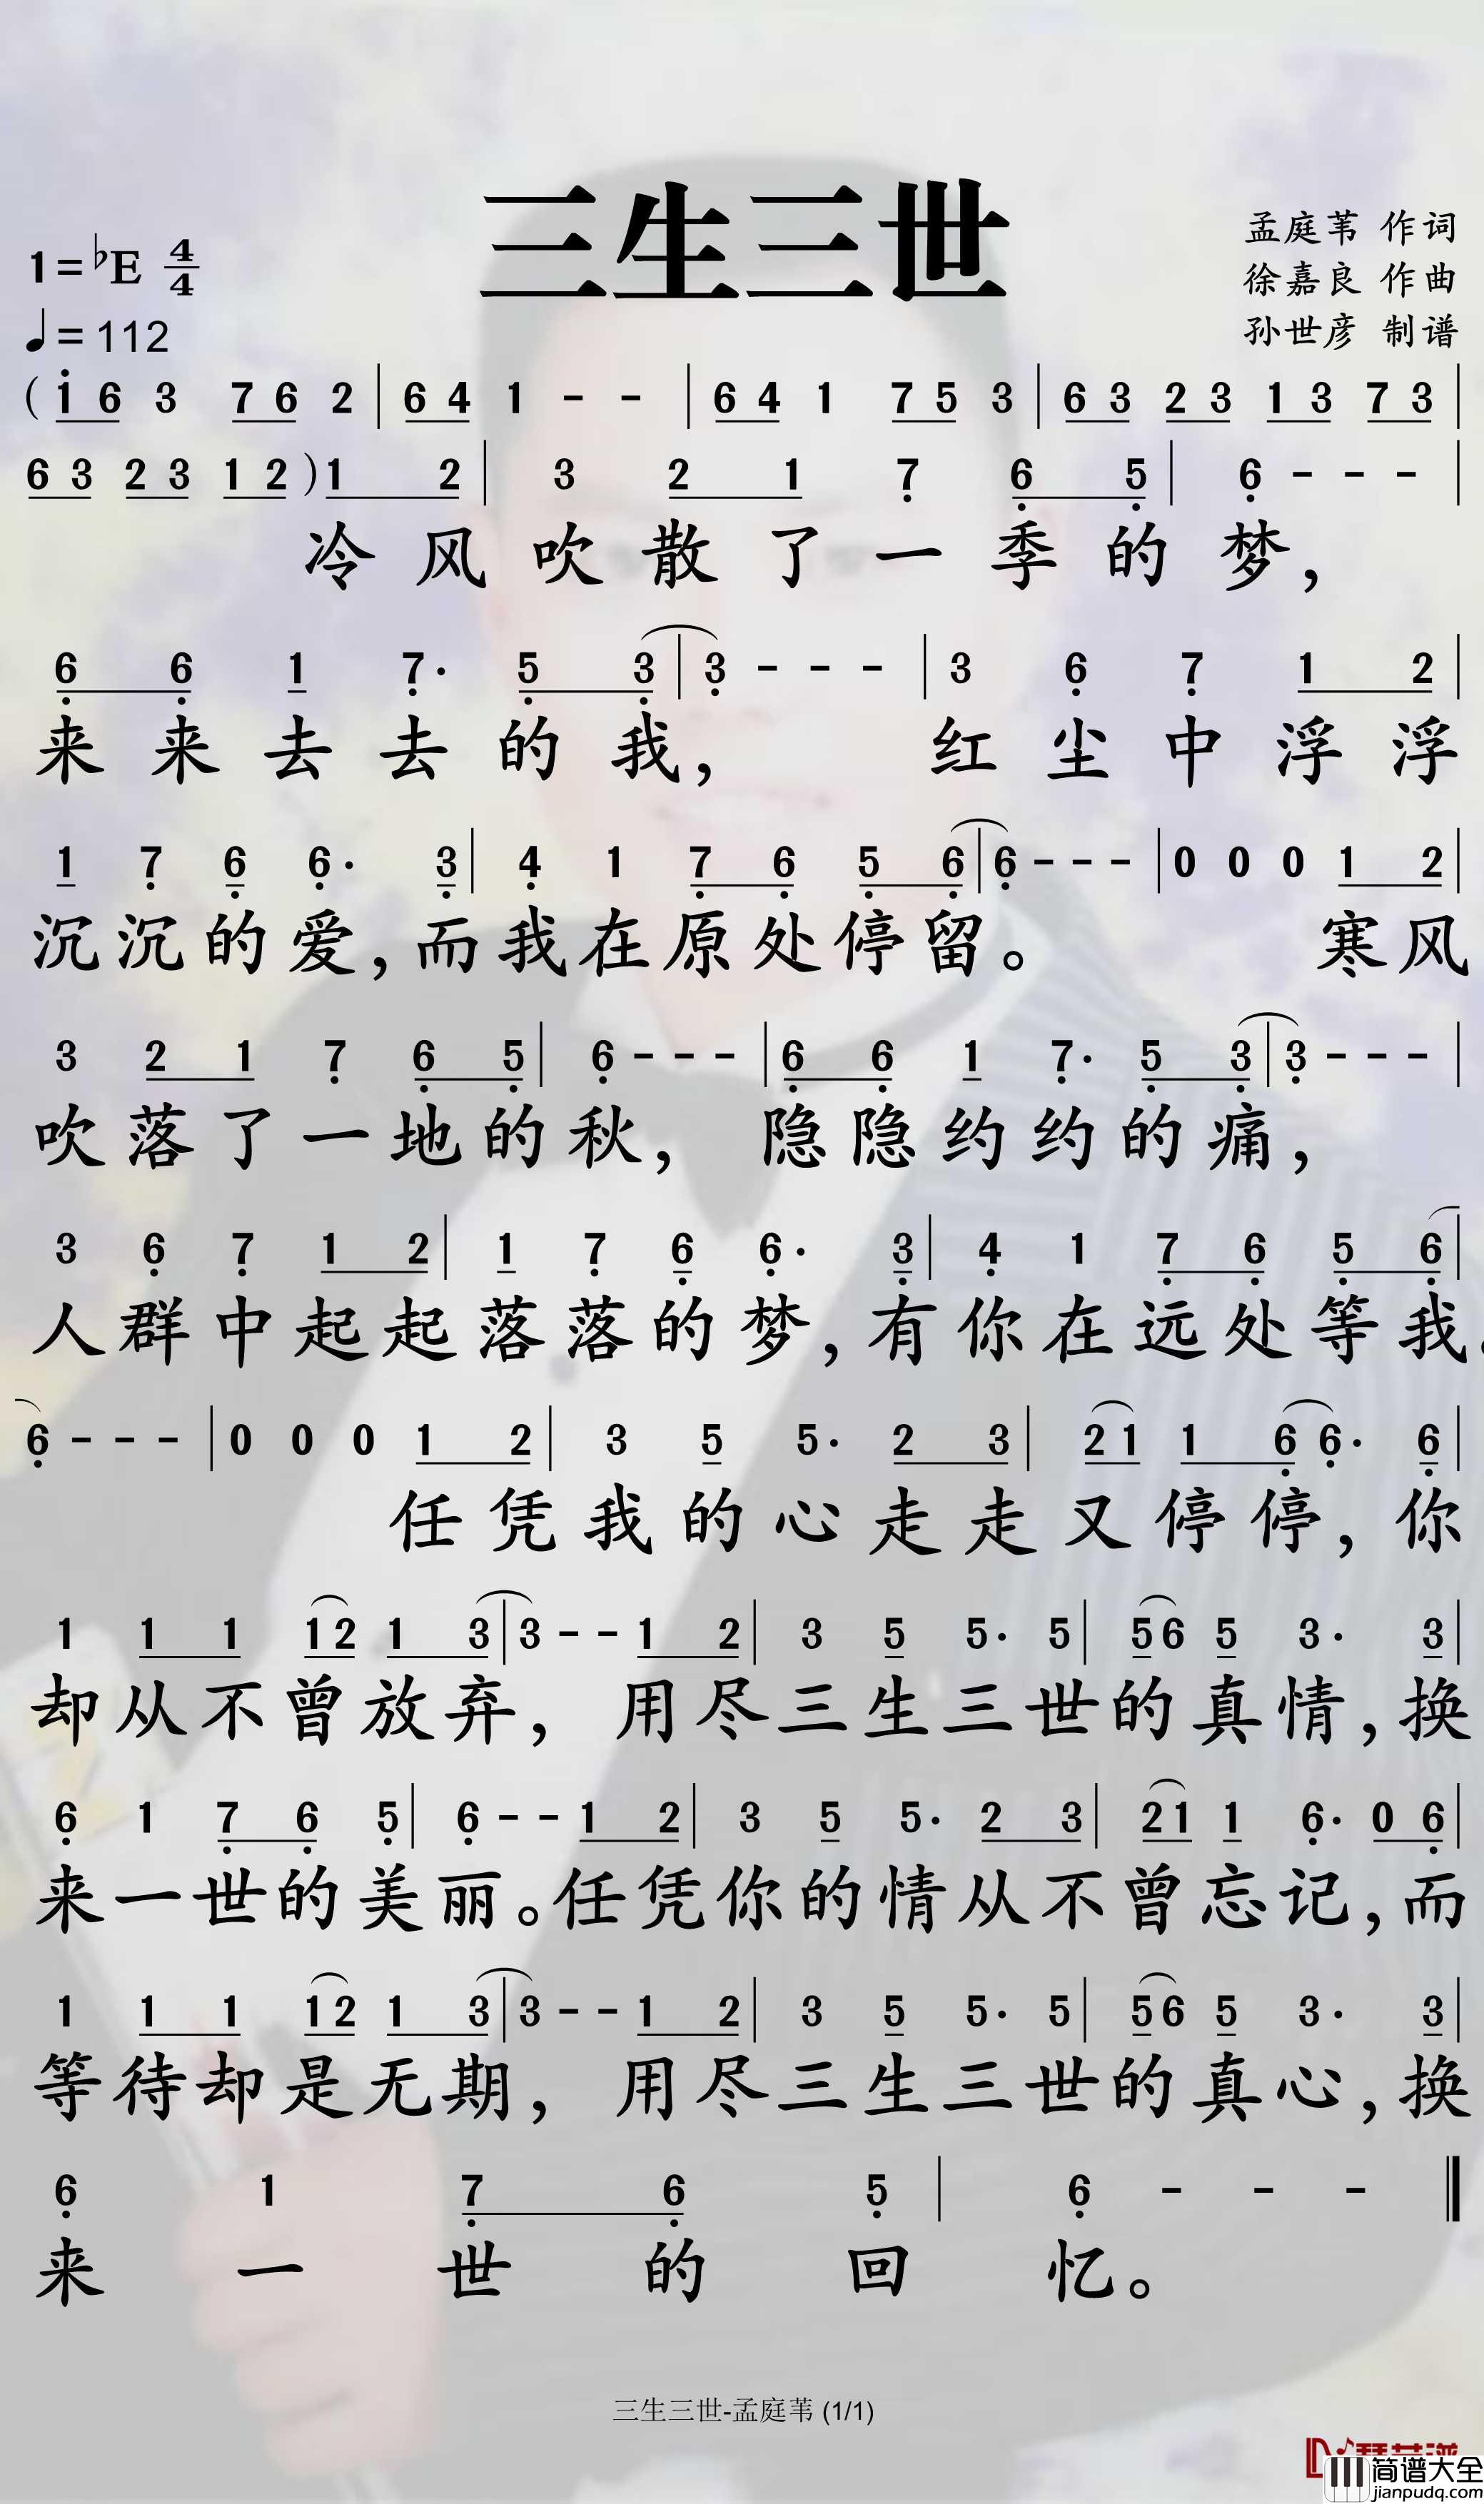 三生三世
1=♭E 4/4
♩=112
孟庭苇 作词
徐嘉良 作曲
孙世彦 制谱
( i 6 3 7 6 2 | 6 4 1 - - | 6 4 1 7 5 3 | 6 3 2 3 1 3 7 3 |
6 3 2 3 1 2 ) 1 2 | 3 2 1 7 6 5 | 6 - - - |
冷风吹散了一季的梦，
6 6 1 7· 5 3 | 3 - - - | 3 6 7 1 2 |
来来去去的我， 红尘中浮浮
1 7 6 6· 3 | 4 1 7 6 5 6 | 6 - - - | 0 0 0 1 2 |
沉沉的爱，而我在原处停留。 寒风
3 2 1 7 6 5 | 6 - - - | 6 6 1 7· 5 3 | 3 - - - |
吹落了一地的秋， 隐隐约约的痛，
3 6 7 1 2 | 1 7 6 6· 3 | 4 1 7 6 5 6 |
人群中起起落落的梦，有你在远处等我。
6 - - - | 0 0 0 1 2 | 3 5 5· 2 3 | 2 1 1 6 6· 6 |
任凭我的心走走又停停，你
1 1 1 1 2 1 3 | 3 - - 1 2 | 3 5 5· 5 | 5 6 5 3· 3 |
却从不曾放弃， 用尽三生三世的真情，换
6 1 7 6 5 | 6 - - 1 2 | 3 5 5· 2 3 | 2 1 1 6· 0 6 |
来一世的美丽。任凭你的情从不曾忘记，而
1 1 1 1 2 1 3 | 3 - - 1 2 | 3 5 5· 5 | 5 6 5 3· 3 |
等待却是无期， 用尽三生三世的真心，换
6 1 7 6 5 | 6 - - - ‖
来一世的回忆。
三生三世-孟庭苇 (1/1)
简谱大全
jianpudq.com